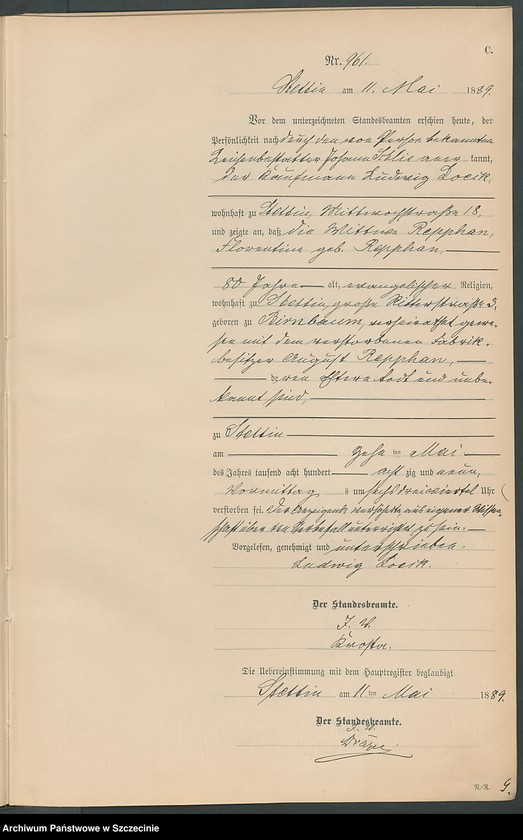 C.
Nr. 961.
Stettin am 11. Mai 1889.
Vor dem unterzeichneten Standesbeamten erschien heute, der
Persönlichkeit nach durch den von Person bekannten
Leichenbestatter Johann kannt,
der Kaufmann Ludwig Locik,
wohnhaft zu Stettin, Mittwochstraße 18,
und zeigte an, daß die Wittwe Repphan,
Florentine geb. Repphan,
80 Jahre alt, evangelischer Religion,
wohnhaft zu Stettin, große Ritterstraße 3,
geboren zu Birnbaum, verheirathet gewe-
sen mit dem verstorbenen Fabrik-
besitzer August Repphan,
deren Eltern todt und unbe-
kannt sind,
zu Stettin
am zehn ten Mai
des Jahres tausend acht hundert acht zig und neun,
Vormittag s um sechs dreiviertel Uhr
verstorben sei. Der Anzeigende versicherte, aus eigener Wissen-
schaft über den Sterbefall unterrichtet zu sein.
Vorgelesen, genehmigt und unterschrieben.
Ludwig Locik.
Der Standesbeamte.
J. V.
Krosta.
Die Uebereinstimmung mit dem Hauptregister beglaubigt
Stettin am 11 ten Mai 1889.
Der Standesbeamte.
J. V.
N.-R.
9.
Archiwum Państwowe w Szczecinie